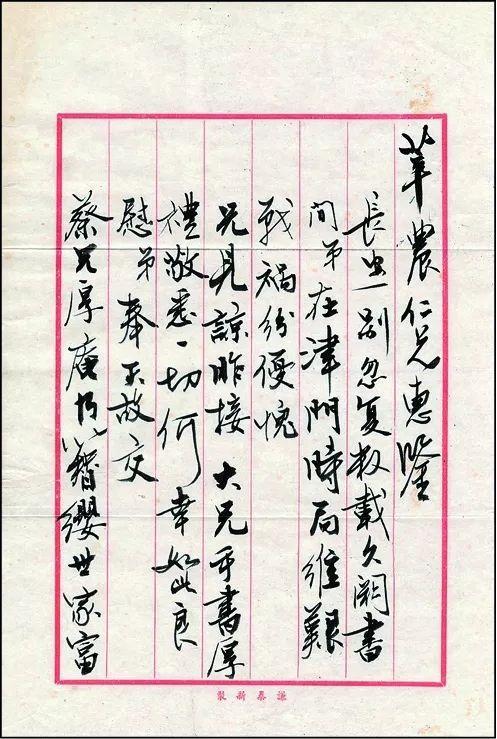 莘農仁兄惠鑒
長一別忽复数載久闊書
间弟在津門時局維艱
戰禍纷優愧
兄見諒昨接大兄手書厚
禮敬悉一切何幸如此良
慰弟奉天故交
蔡兄厚庵乃簪纓世家富
謙泰新製